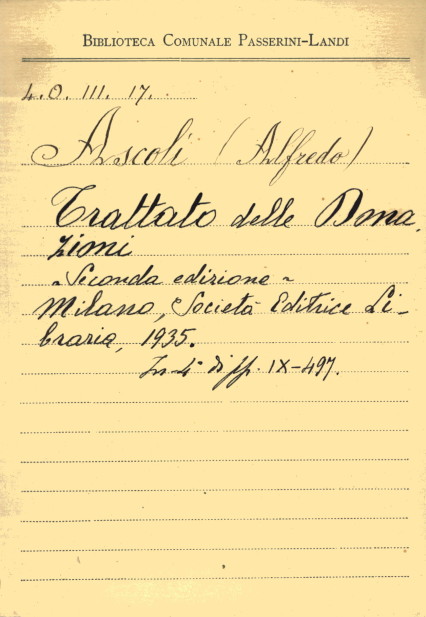 BIBLIOTECA COMUNALE PASSERINI-LANDI
4. O. III. 17.
Ascoli (Alfredo)
Trattato delle Dona
zioni
- Seconda edizione -
Milano, Società Editrice Li-
braria, 1935.
In-4° di pp. IX-497.